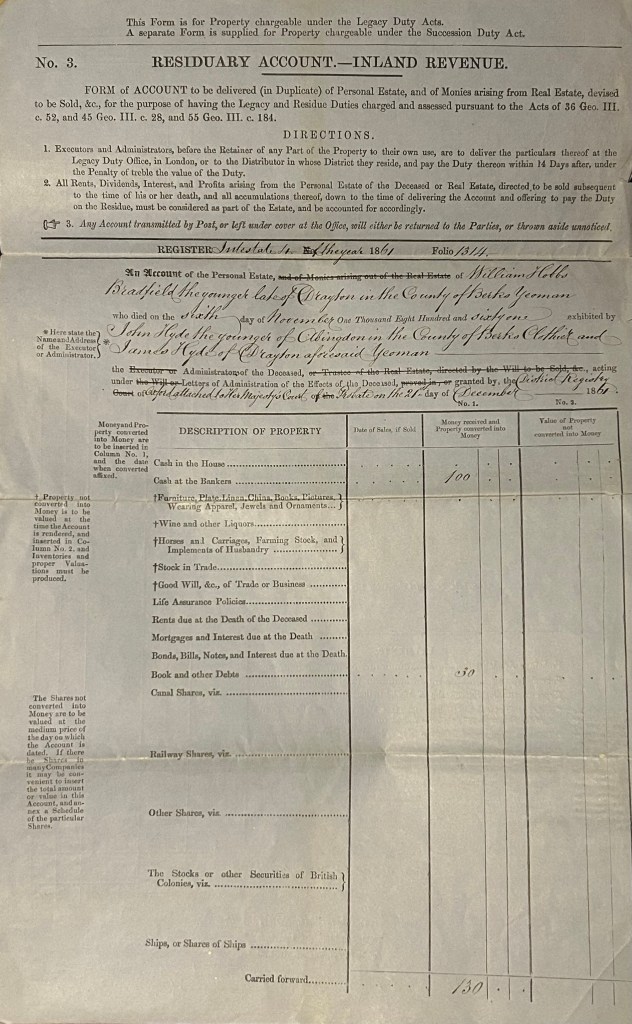 This Form is for Property chargeable under the Legacy Duty Acts.
A separate Form is supplied for Property chargeable under the Succession Duty Act.
No. 3.
RESIDUARY ACCOUNT.—INLAND REVENUE.
FORM of ACCOUNT to be delivered (in Duplicate) of Personal Estate, and of Monies arising from Real Estate, devised
to be Sold, &c., for the purpose of having the Legacy and Residue Duties charged and assessed pursuant to the Acts of 36 Geo. III.
c. 52, and 45 Geo. III. c. 28, and 55 Geo. III. c. 184.
DIRECTIONS.
1. Executors and Administrators, before the Retainer of any Part of the Property to their own use, are to deliver the particulars thereof at the
Legacy Duty Office, in London, or to the Distributor in whose District they reside, and pay the Duty thereon within 14 Days after, under
the Penalty of treble the value of the Duty.
2. All Rents, Dividends, Interest, and Profits arising from the Personal Estate of the Deceased or Real Estate, directed to be sold subsequent
to the time of his or her death, and all accumulations thereof, down to the time of delivering the Account and offering to pay the Duty
on the Residue, must be considered as part of the Estate, and be accounted for accordingly.
☞ 3. Any Account transmitted by Post, or left under cover at the Office, will either be returned to the Parties, or thrown aside unnoticed.
REGISTER Intestate 4 of the year 1861 Folio 1314
An Account of the Personal Estate, and of Monies arising out of the Real Estate of William Hobbs
Bradfield the younger late of Drayton in the County of Berks Yeoman
who died on the sixth day of November One Thousand Eight Hundred and sixty one exhibited by
* Here state the
Name and Address
of the Executor
or Administrator.
* John Hyde the younger of Abingdon in the County of Berks Clothier and
James Hyde of Drayton aforesaid Yeoman
the Executor or Administrators of the Deceased, or Trustee of the Real Estate, directed by the Will to be Sold, &c., acting
under the Will or Letters of Administration of the Effects of the Deceased, proved in, or granted by, the District Registry
Court of Oxford attached to Her Majestys Court of Probate on the 21 day of December 1861
Money and Pro-
perty converted
into Money are
to be inserted in
Column No. 1,
and the date
when converted
affixed.
DESCRIPTION OF PROPERTY
Date of Sales, if Sold
No. 1.
Money received and
Property converted into
Money
No. 2.
Value of Property
not
converted into Money
Cash in the House
Cash at the Bankers 100
† Property not
converted into
Money is to be
valued at the
time the Account
is rendered, and
inserted in Co-
lumn No. 2, and
Inventories and
proper Valua-
tions must be
produced.
†Furniture, Plate, Linen, China, Books, Pictures,
Wearing Apparel, Jewels and Ornaments...
†Wine and other Liquors
†Horses and Carriages, Farming Stock, and
Implements of Husbandry
†Stock in Trade
†Good Will, &c., of Trade or Business
Life Assurance Policies
Rents due at the Death of the Deceased
Mortgages and Interest due at the Death
Bonds, Bills, Notes, and Interest due at the Death.
Book and other Debts 30
Canal Shares, viz.
The Shares not
converted into
Money are to be
valued at the
medium price of
the day on which
the Account is
dated. If there
be Shares in
many Companies
it may be con-
venient to insert
the total amount
or value in this
Account, and an-
nex a Schedule
of the particular
Shares.
Railway Shares, viz.
Other Shares, viz.
The Stocks or other Securities of British
Colonies, viz.
Ships, or Shares of Ships
Carried forward 130